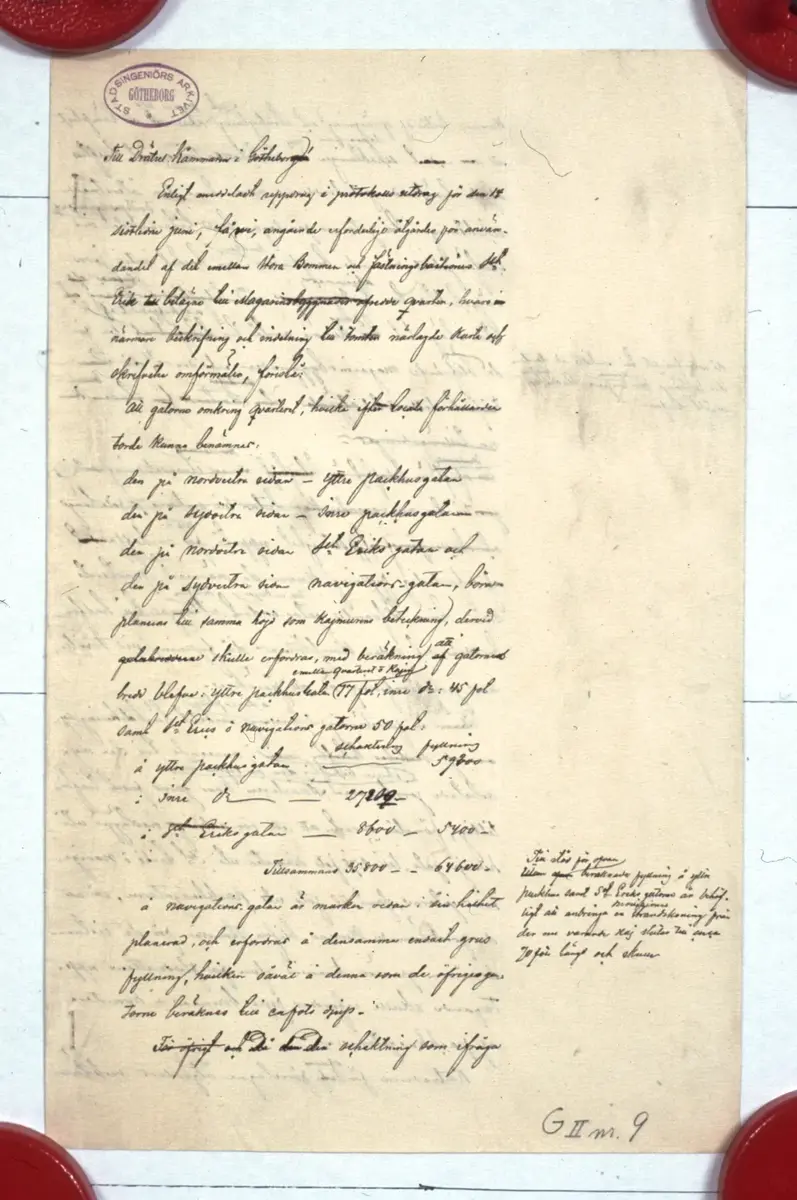 STADSINGENIÖRS ARKIVET
GÖTHEBORG
Till Drätsel Kammaren i Götheborg!
Enligt meddeladt uppdrag i protokolls utdrag för den 14
sistlidne juni, få vi, angående erforderlige åtgärder för använ-
dandet af det emellan Stora Bommen och fästningsbastionen Sct
Erik till belägne till Magasinsbyggnader afsedde qvarter, hvars
närmare beskrifning och indelning till tomter närlagde Karta och
skrifvelse omförmäler, föreslå:
Att gatorna omkring qvarteret, hvilka efter locala förhållanden
torde kunna benämnas:
den på nordvestra sidan – Yttre packhusgatan
den på sydöstra sidan – Inre packhusgatan
den på nordöstra sidan Sct Eriks gatan och
den på sydvestra sidan navigations-gatan, böra
planeras till samma höjd som Kajmurens betäckning, dervid
skulle erfordras, med beräkning att af gatornas
emellan Quarteret o Kajen
bredd blefve: yttre packhusgatan 77 fot, inre do: 45 fot
samt Sct Erics o navigations gatorna 50 fot:
schaktning fyllning
å yttre packhusgatan 59200
i inre do — — 27200 –
i Sct Eriksgatan — 8600 – 5400 –
Tillsammans 35800 – – 64600 –
å navigations gatan är marken redan i sin helhet
planerad, och erfordras å densamma endast grus
fyllning, hvilken såväl å denna som de öfriga ga-
torne beräknas till en fots djup. –
För öfrigt och Då den Den schäktning som ifråga
Utan beräknade fyllning å yttre
packhus samt Sct Eriks gatorna är behöf-
ligt att anbringa en strandskoning från
den nu varande Kaj
70 fot längd och
G II nr. 9